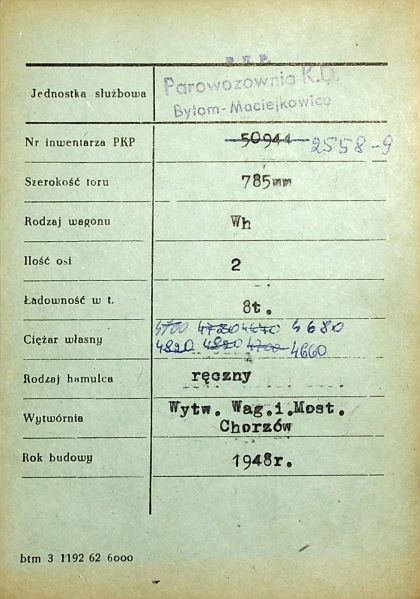 P.K.P.
Jednostka służbowa Parowozownia K.D.
Bytom-Maciejkowice
Nr inwentarza PKP 50944 2558-9
Szerokość toru 785mm
Rodzaj wagonu Wh
Ilość osi 2
Ładowność w t. 8t.
4700 4780 4680
Ciężar własny 4820 4820 4700 4660
Rodzaj hamulca ręczny
Wytwórnia Wytw. Wag.i.Most.
Chorzów
Rok budowy 1948r.
btm 3 1192 62 6000